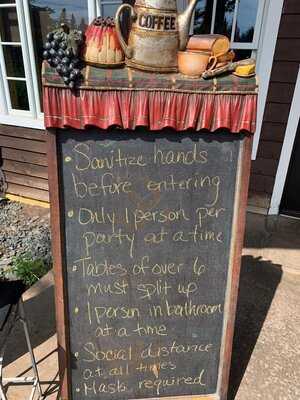 COFFEE
• Sanitize hands
before entering
• Only 1 person per
party at a time
• Tables of over 6
must split up
• 1 person in bathroom
at a time
• Social distance
at all times
• Masks required